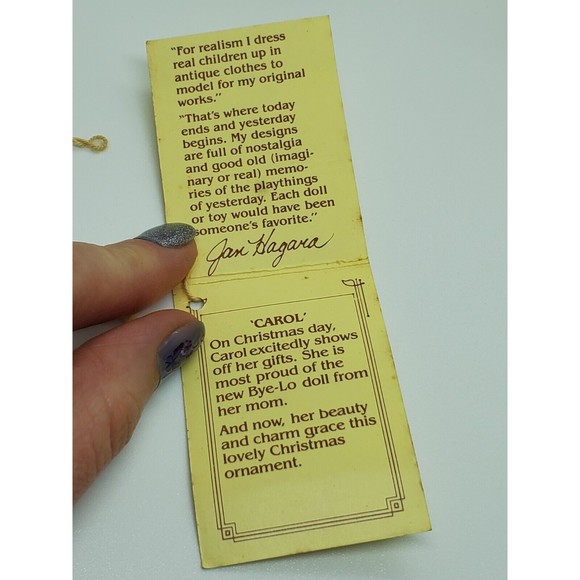 "For realism I dress
real children up in
antique clothes to
model for my original
works."
"That's where today
ends and yesterday
begins. My designs
are full of nostalgia
and good old (imagi-
nary or real) memo-
ries of the playthings
of yesterday. Each doll
or toy would have been
someone's favorite."
Jan Hagara
'CAROL'
On Christmas day,
Carol excitedly shows
off her gifts. She is
most proud of the
new Bye-Lo doll from
her mom.
And now, her beauty
and charm grace this
lovely Christmas
ornament.